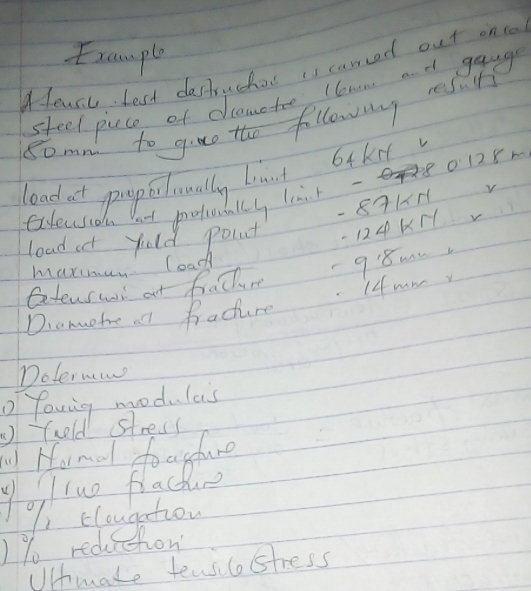 Example
A tensile test destruction is carried out on
steel piece of diametre 16mm and gauge
80mm to give the following results
load at proportionally limit 64KN
Extension at protionally limit - 0.128 m
load at Yield point - 87KN
maximum load - 124KN
Extension at fracture - 9.8mm
Diametre at fracture - 14mm
Determine
i) Young modulus
ii) Yield Stress
iii) Normal fracture
v) True fracture
) % Elongation
) % reduction
Ultimate tensile Stress